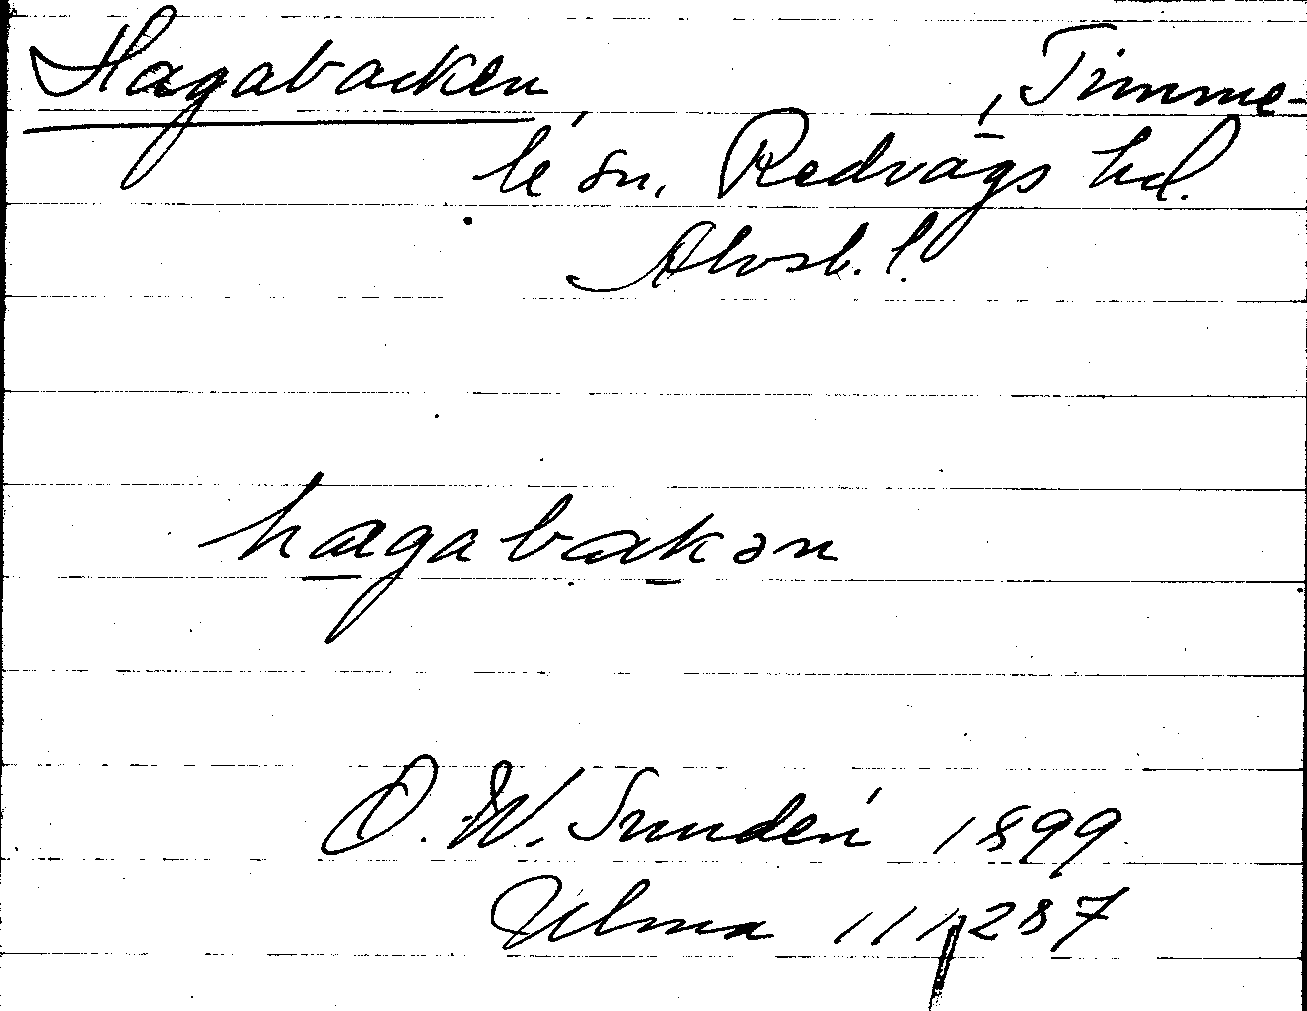 Hagabacken, Timme-
le sn, Redvägs hd.
Älvsb. l.
hagabakən
D. W. Sundén 1899
Ulma 111,287